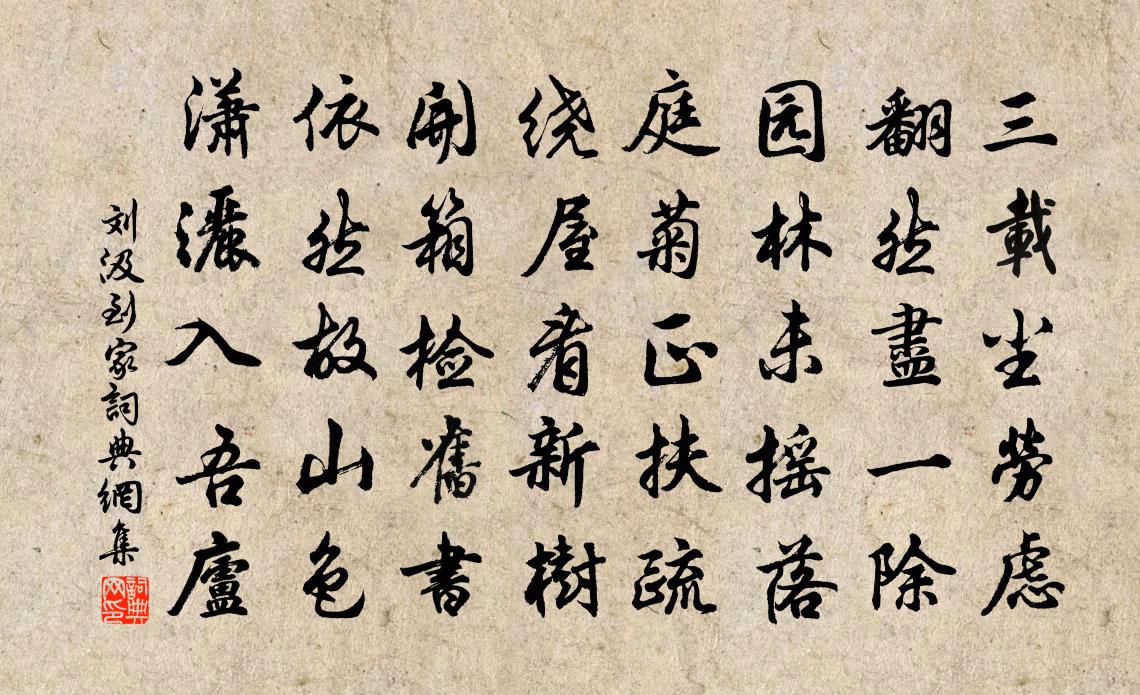 三載尘勞慮
翻然盡一除
园林未摇落
庭菊正扶疏
绕屋看新樹
開箱检舊書
依然故山色
潇灑入吾廬
刘汲到家詞典網集
詞典
网印